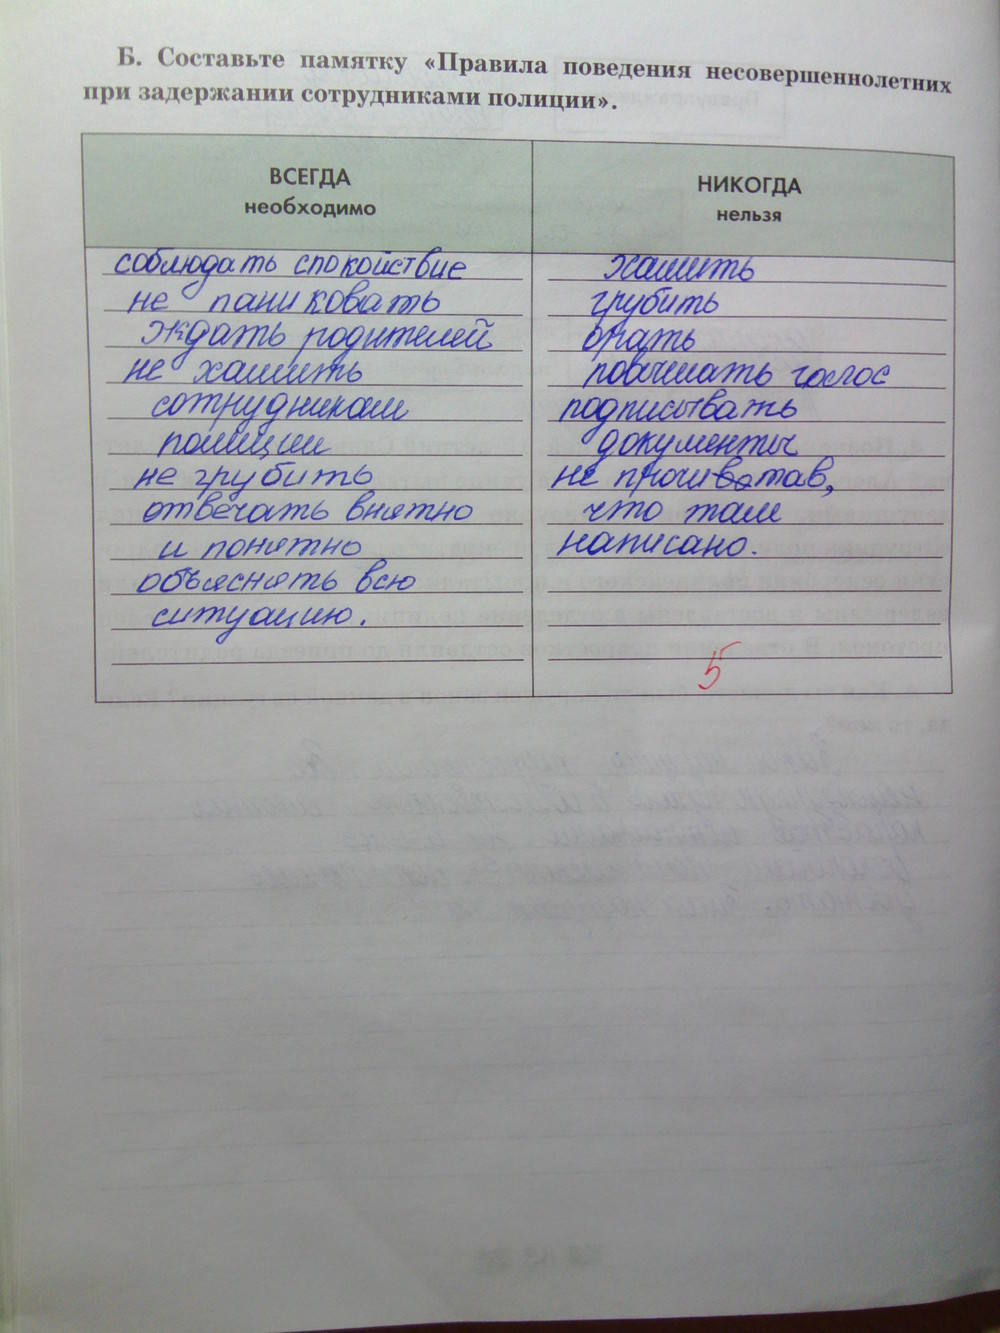 Б. Составьте памятку «Правила поведения несовершеннолетних
при задержании сотрудниками полиции».
ВСЕГДА
необходимо
соблюдать спокойствие
не паниковать
ждать родителей
не хамить
сотрудникам
полиции
не грубить
отвечать внятно
и понятно
объяснять всю
ситуацию.
НИКОГДА
нельзя
хамить
грубить
орать
повышать голос
подписывать
документы
не прочитав,
что там
написано.
5